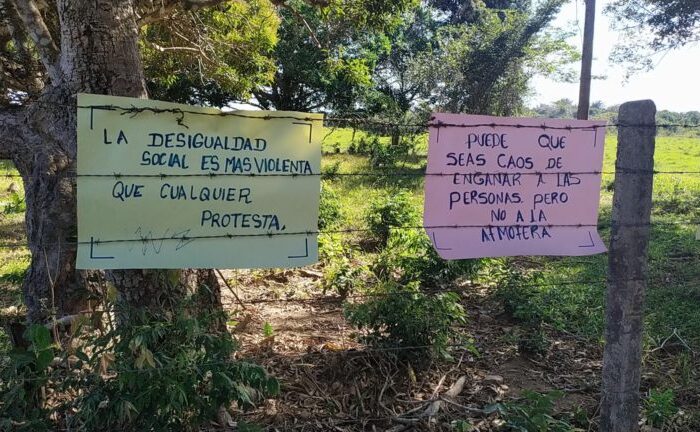 LA DESIGUALDAD
SOCIAL ES MAS VIOLENTA
QUE CUALQUIER
PROTESTA.
PUEDE QUE
SEAS CAOS DE
ENGANAR A LAS
PERSONAS. PERO
NO A LA
ATMOFERA